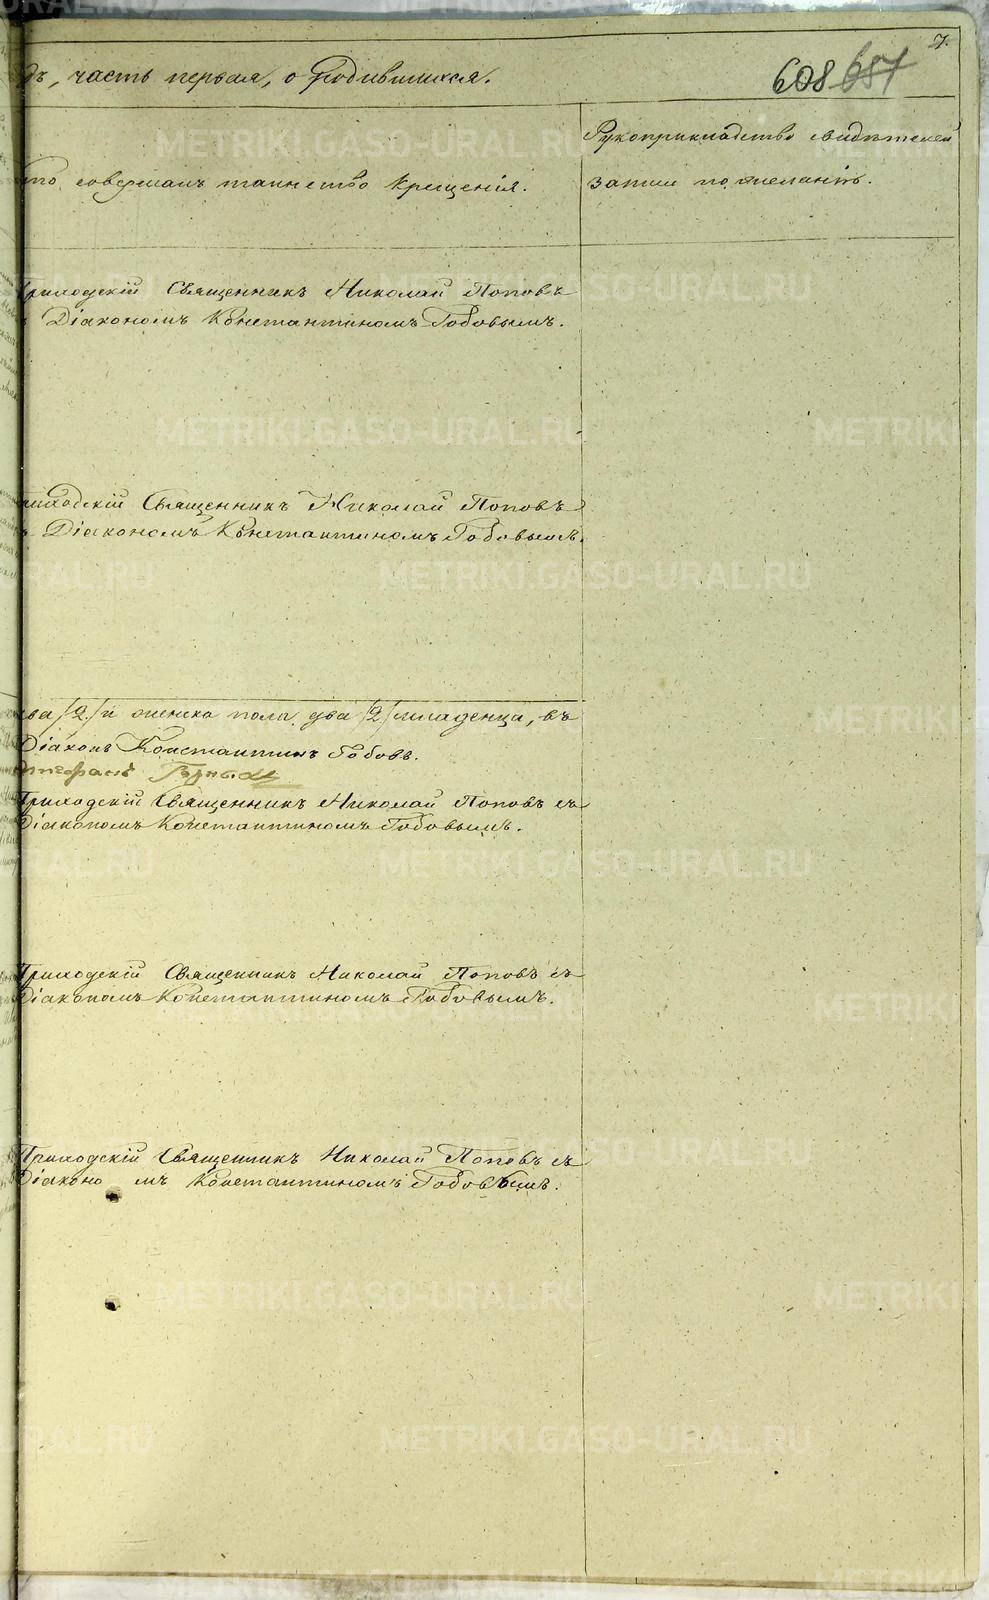 7.
дъ, часть первая, о родившихся.
608 687
Рукоприкладство свидѣтелей
кто совершалъ таинство крещенія.
записи по желанію.
Приходскій Священникъ Николай Поповъ
съ Діакономъ Константиномъ Гобовымъ.
Приходскій Священникъ Николай Поповъ
съ Діакономъ Константиномъ Гобовымъ.
два /2/ и женска пола два /2/ младенца, въ
Діаконъ Константинъ Гобовъ.
Стефанъ
Приходскій Священникъ Николай Поповъ съ
Діакономъ Константиномъ Гобовымъ.
Приходскій Священникъ Николай Поповъ съ
Діакономъ Константиномъ Гобовымъ.
Приходскій Священникъ Николай Поповъ съ
Діаконо мъ Константиномъ Гобовымъ.
METRIKI.GASO-URAL.RU